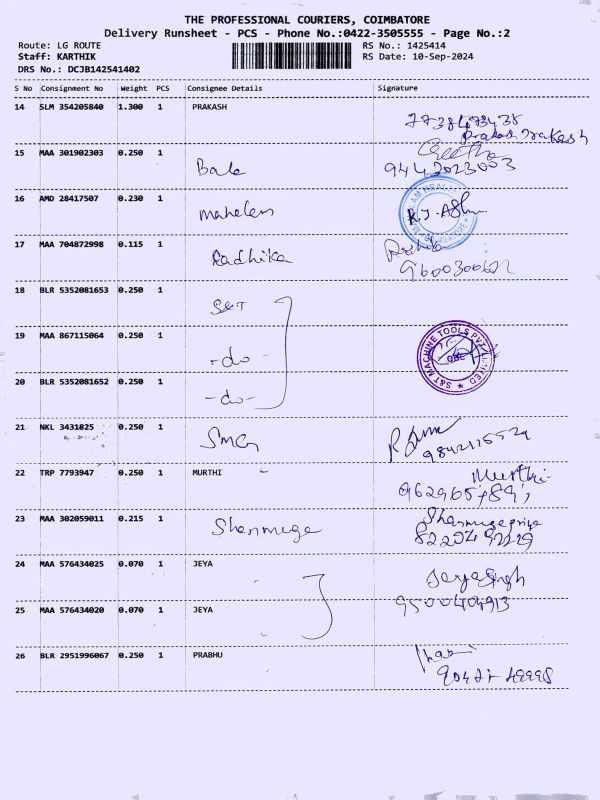 THE PROFESSIONAL COURIERS, COIMBATORE
Delivery Runsheet - PCS - Phone No.:0422-3505555 - Page No.:2
Route: LG ROUTE
RS No.: 1425414
Staff: KARTHIK
RS Date: 10-Sep-2024
DRS No.: DCJB142541402
S No Consignment No Weight PCS Consignee Details Signature
14 SLM 354205840 1.300 1 PRAKASH
Prakash
15 MAA 301902303 0.250 1 Bala
Geetha
9442023003
16 AMD 28417507 0.230 1
17 MAA 704872998 0.115 1 Radhika
18 BLR 5352081653 0.250 1 S&T
19 MAA 867115064 0.250 1 -do-
S&T MACHINE TOOLS PVT LIMITED
20 BLR 5352081652 0.250 1 -do-
21 NKL 3431825 0.250 1
22 TRP 7793947 0.250 1 MURTHI
Murthi
23 MAA 302059011 0.215 1 Shanmuga
Shanmugapriya
24 MAA 576434025 0.070 1 JEYA
Jeyasingh
9500404913
25 MAA 576434020 0.070 1 JEYA
26 BLR 2951996067 0.250 1 PRABHU